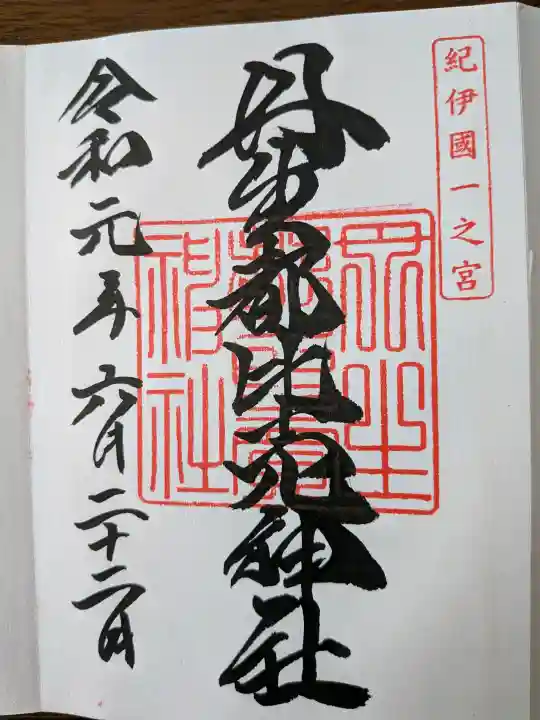 紀伊國一之宮
丹生都比売神社
丹生都比賣神社
令和元年六月二十二日